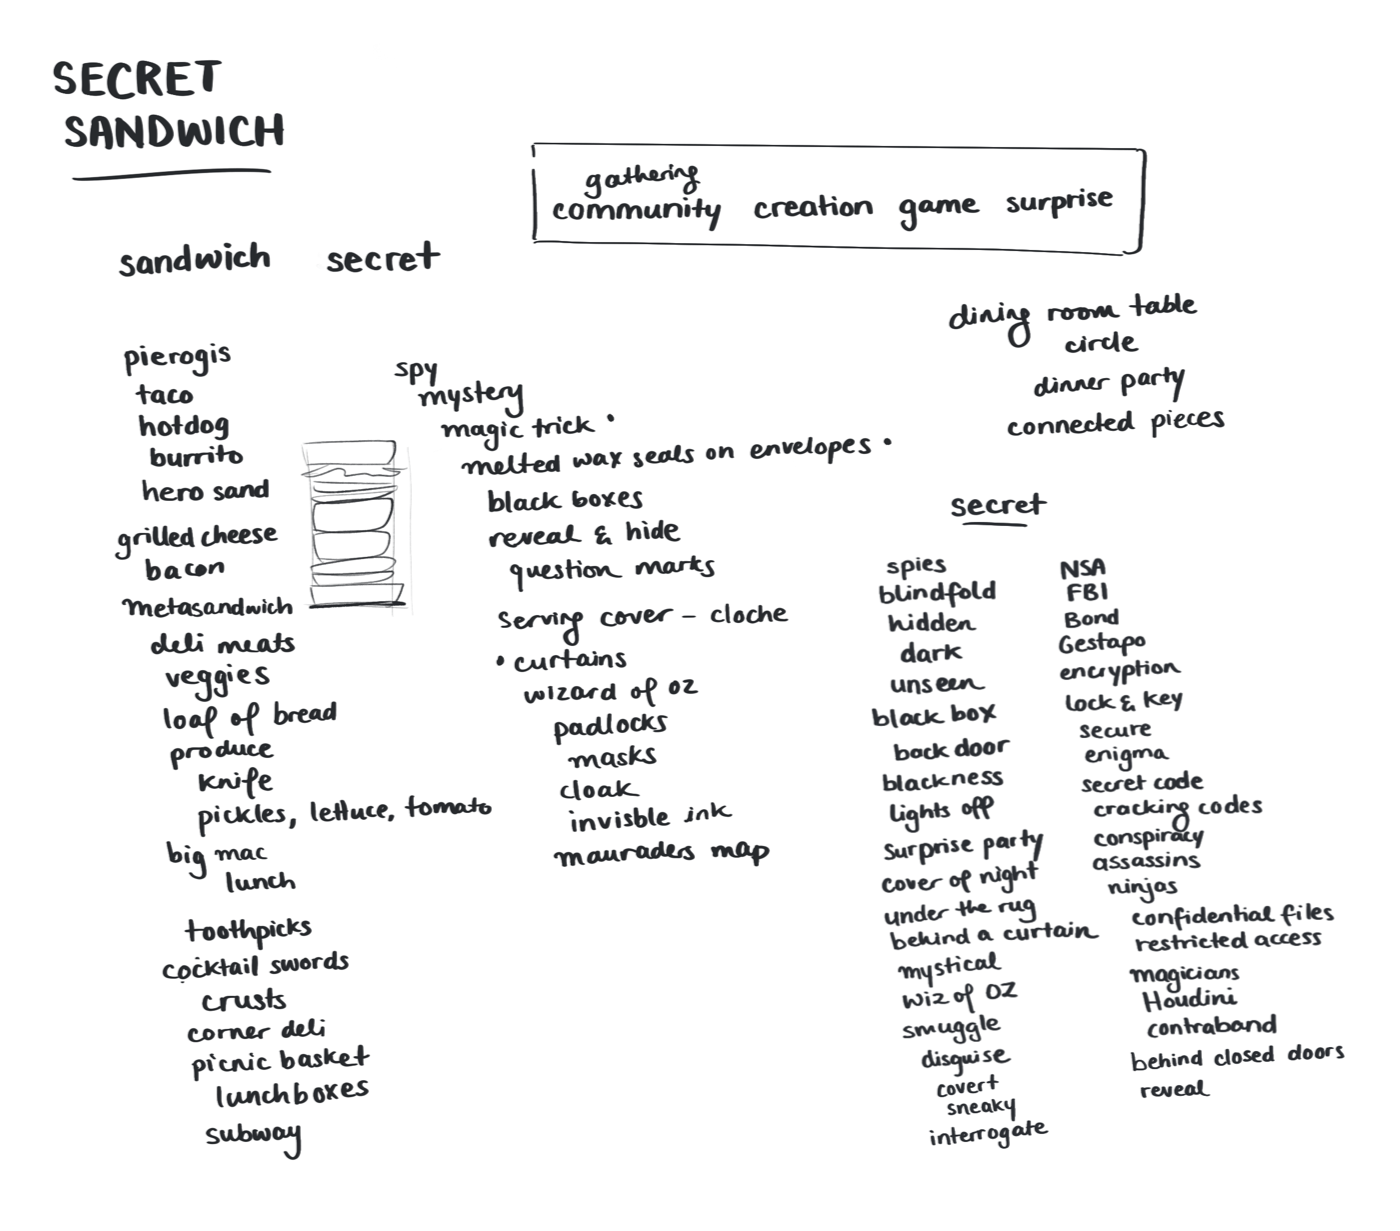 SECRET
SANDWICH
gathering
community creation game surprise
sandwich secret
pierogis
taco
hotdog
burrito
hero sand
grilled cheese
bacon
metasandwich
deli meats
veggies
loaf of bread
produce
knife
pickles, lettuce, tomato
big mac
lunch
toothpicks
cocktail swords
crusts
corner deli
picnic basket
lunchboxes
subway
spy
mystery
magic trick •
melted wax seals on envelopes •
black boxes
reveal & hide
question marks
serving cover - cloche
• curtains
wizard of oz
padlocks
masks
cloak
invisble ink
mauraders map
dining room table
circle
dinner party
connected pieces
secret
spies
blindfold
hidden
dark
unseen
black box
back door
blackness
lights off
surprise party
cover of night
under the rug
behind a curtain
mystical
wiz of OZ
smuggle
disguise
covert
sneaky
interrogate
NSA
FBI
Bond
Gestapo
encryption
lock & key
secure
enigma
secret code
cracking codes
conspiracy
assassins
ninjas
confidential files
restricted access
magicians
Houdini
contraband
behind closed doors
reveal